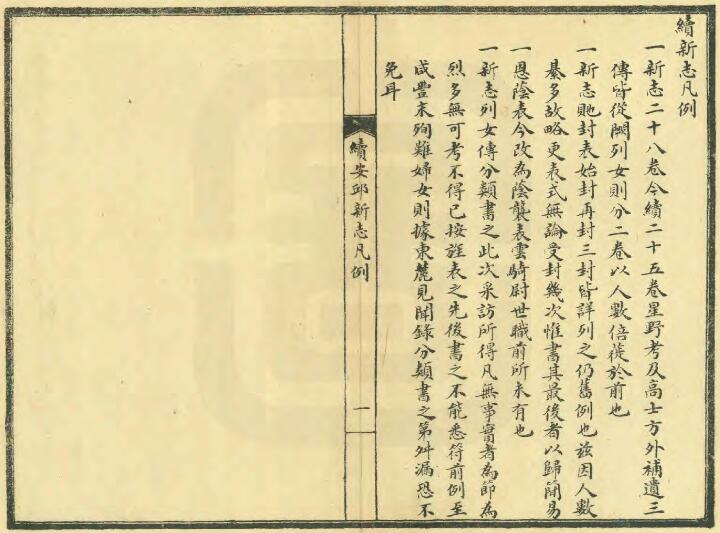 續新志凡例
一新志二十八卷今續二十五卷星野考及高士方外補遺三
傳皆從闕列女則分二卷以人數倍蓰於前也
一新志貤封表始封再封三封皆詳列之仍舊例也茲因人數
綦多故略更表式無論受封幾次惟書其最後者以歸簡易
一恩蔭表今改為蔭襲表雲騎尉世職前所未有也
一新志列女傳分類書之此次采訪所得凡無事實者為節為
烈多無可考不得已按旌表之先後書之不能悉符前例至
咸豐末殉難婦女則據東麓見聞錄分類書之第舛漏恐不
免耳
續安邱新志凡例
一